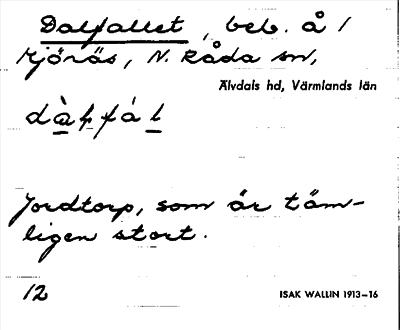 Dalfallet, beb. å 1
Mjönäs, N. Råda sn,
Älvdals hd, Värmlands län
Jordtorp, som är täm-
ligen stort.
12
ISAK WALLIN 1913–16